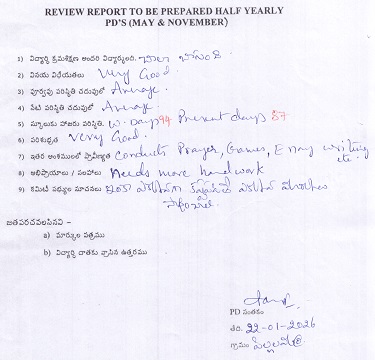 REVIEW REPORT TO BE PREPARED HALF YEARLY
PD'S (MAY & NOVEMBER)
1) విద్యార్థి క్రమశిక్షణ అందరి విద్యార్థులది. చాలా బాగుంది
2) వినయ విధేయతలు Very Good
3) పూర్వపు పరిస్థితి చదువులో Average
4) నేటి పరిస్థితి చదువులో Average
5) స్కూలుకు హాజరు పరిస్థితి. W. Days 94 Present days 87
6) పరిశుభ్రత Very Good.
7) ఇతర అంశములలో ప్రావీణ్యత Conducts Prayer, Games, Essay writing etc.
8) అభిప్రాయాలు / సలహాలు Needs more hardwork
9) కమిటీ సభ్యుల సూచనలు
జతపరచవలసినవి -
a) మార్కుల పత్రము
b) విద్యార్థి దాతకు వ్రాసిన ఉత్తరము
PD సంతకం
తేది. 22-01-2026
గ్రామం